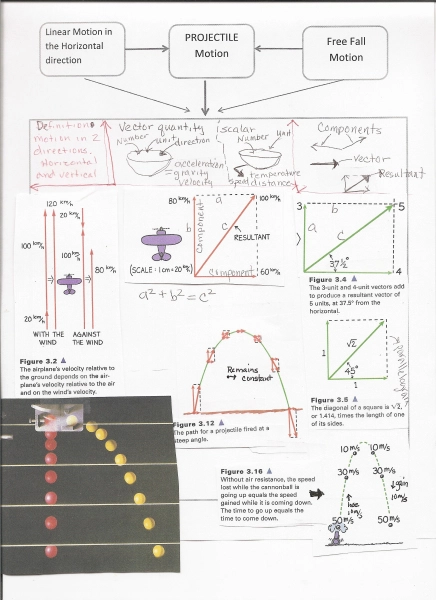 Linear Motion in
the Horizontal
direction
PROJECTILE
Motion
Free Fall
Motion
Definition:
motion in 2
directions,
Horizontal
and vertical
Vector quantity
Number unit direction
acceleration
gravity
velocity
scalar
Number unit
temperature
speed distance
Components
vector
Resultant
120 km/h
20 km/h
100 km/h
100 km/h
80 km/h
20 km/h
WITH THE
WIND
AGAINST
THE WIND
Figure 3.2 ▲
The airplane's velocity relative to
the ground depends on the air-
plane's velocity relative to the air
and on the wind's velocity.
80 km/h
a
100 km/h
b
Component
c
RESULTANT
(SCALE: 1 cm = 20 km/h)
Component
60 km/h
a² + b² = c²
3
b
5
a
c
37½°
4
Figure 3.4 ▲
The 3-unit and 4-unit vectors add
to produce a resultant vector of
5 units, at 37.5° from the
horizontal.
1
√2
45°
1
parallelogram
Figure 3.5 ▲
The diagonal of a square is √2,
or 1.414, times the length of one
of its sides.
Remains
↔ constant
Figure 3.12 ▲
The path for a projectile fired at a
steep angle.
Figure 3.16 ▲
Without air resistance, the speed
lost while the cannonball is
going up equals the speed
gained while it is coming down.
The time to go up equals the
time to come down.
10 m/s
10 m/s
30 m/s
30 m/s
lose
10m/s
gain
10m/s
50 m/s
50 m/s